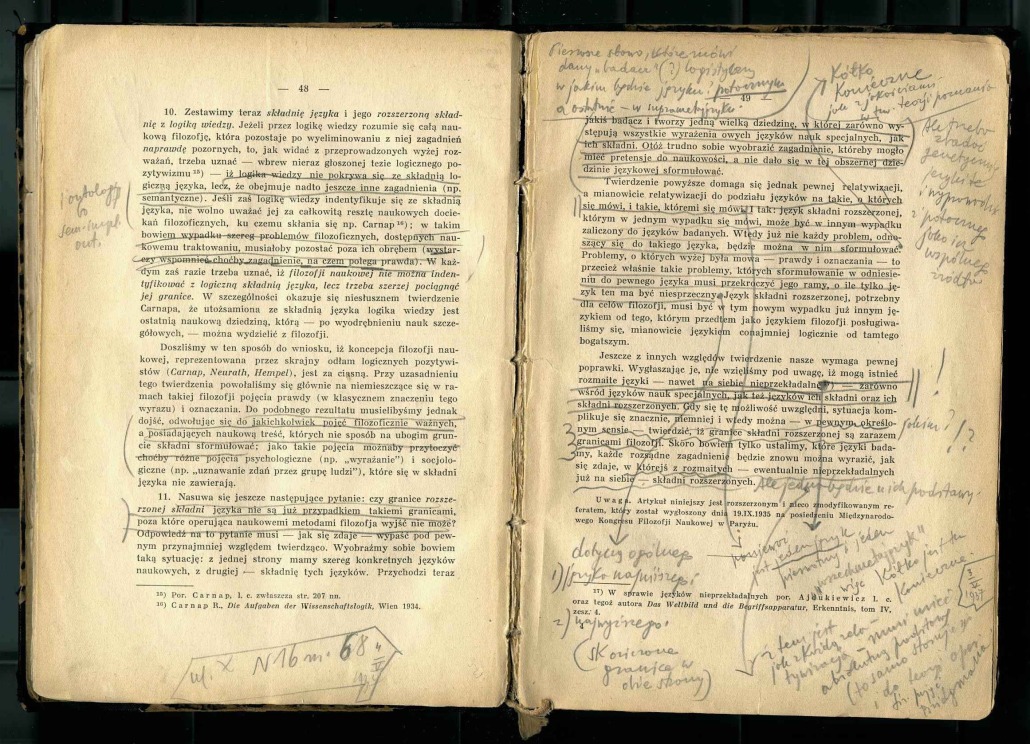 — 48 —
10. Zestawimy teraz składnię języka i jego rozszerzoną skład-
nię z logiką wiedzy. Jeżeli przez logikę wiedzy rozumie się całą nau-
kową filozofję, która pozostaje po wyeliminowaniu z niej zagadnień
naprawdę pozornych, to, jak widać z przeprowadzonych wyżej roz-
ważań, trzeba uznać — wbrew nieraz głoszonej tezie logicznego po-
zytywizmu ¹⁵) — iż logika wiedzy nie pokrywa się ze składnią lo-
giczną języka, lecz, że obejmuje nadto jeszcze inne zagadnienia (np.
semantyczne). Jeśli zaś logikę wiedzy indentyfikuje się ze składnią
języka, nie wolno uważać jej za całkowitą resztę naukowych docie-
kań filozoficznych, ku czemu skłania się np. Carnap ¹⁶); w takim
bowiem wypadku szereg problemów filozoficznych, dostępnych nau-
kowemu traktowaniu, musiałoby pozostać poza ich obrębem (wystar-
czy wspomnieć choćby zagadnienie, na czem polega prawda). W każ-
dym zaś razie trzeba uznać, iż filozofji naukowej nie można inden-
tyfikować z logiczną składnią języka, lecz trzeba szerzej pociągnąć
jej granice. W szczególności okazuje się niesłusznem twierdzenie
Carnapa, że utożsamiona ze składnią języka logika wiedzy jest
ostatnią naukową dziedziną, którą — po wyodrębnieniu nauk szcze-
gółowych, — można wydzielić z filozofji.
Doszliśmy w ten sposób do wniosku, iż koncepcja filozofji nau-
kowej, reprezentowana przez skrajny odłam logicznych pozytywi-
stów (Carnap, Neurath, Hempel), jest za ciasną. Przy uzasadnieniu
tego twierdzenia powołaliśmy się głównie na niemieszczące się w ra-
mach takiej filozofji pojęcia prawdy (w klasycznem znaczeniu tego
wyrazu) i oznaczania. Do podobnego rezultatu musielibyśmy jednak
dojść, odwołując się do jakichkolwiek pojęć filozoficznie ważnych,
a posiadających naukową treść, których nie sposób na ubogim grun-
cie składni sformułować; jako takie pojęcia moznaby przytoczyć
choćby różne pojęcia psychologiczne (np. „wyrażanie”) i socjolo-
giczne (np. „uznawanie zdań przez grupę ludzi”), które się w składni
języka nie zawierają.
11. Nasuwa się jeszcze następujące pytanie: czy granice rozsze-
rzonej składni języka nie są już przypadkiem takiemi granicami,
poza które operująca naukowemi metodami filozofja wyjść nie może?
Odpowiedź na to pytanie musi — jak się zdaje — wypaść pod pew-
nym przynajmniej względem twierdząco. Wyobraźmy sobie bowiem
taką sytuację: z jednej strony mamy szereg konkretnych języków
naukowych, z drugiej — składnię tych języków. Przychodzi teraz
¹⁵) Por. Carnap, l. c. zwłaszcza str. 207 nn.
¹⁶) Carnap R., Die Aufgaben der Wissenschaftslogik, Wien 1934.
ul. X N 16 m. 68
Pierwsze słowo, które mówi
dany „badacz” (?) logistyczny
w jakim będzie języku? potocznym
a ostatnie — w supremetajęzyku?
Kółko
Konieczne
49
jakiś badacz i tworzy jedną wielką dziedzinę, w której zarówno wy-
stępują wszystkie wyrażenia owych języków nauk specjalnych, jak
ich składni. Otóż trudno sobie wyobrazić zagadnienie, któreby mogło
mieć pretensje do naukowości, a nie dało się w tej obszernej dzie-
dzinie językowej sformułować.
Twierdzenie powyższe domaga się jednak pewnej relatywizacji,
a mianowicie relatywizacji do podziału języków na takie, o których
się mówi, i takie, któremi się mówi. I tak: język składni rozszerzonej,
którym w jednym wypadku się mówi, może być w innym wypadku
zaliczony do języków badanych. Wtedy już nie każdy problem, odno-
szący się do takiego języka, będzie można w nim sformułować.
Problemy, o których wyżej była mowa — prawdy i oznaczania — to
przecież właśnie takie problemy, których sformułowanie w odniesie-
niu do pewnego języka musi przekroczyć jego ramy, o ile tylko ję-
zyk ten ma być niesprzeczny. Język składni rozszerzonej, potrzebny
dla celów filozofji, musi być w tym nowym wypadku już innym ję-
zykiem od tego, którym przedtem jako językiem filozofji posługiwa-
liśmy się, mianowicie językiem conajmniej logicznie od tamtego
bogatszym.
Jeszcze z innych względów twierdzenie nasze wymaga pewnej
poprawki. Wygłaszając je, nie wzięliśmy pod uwagę, iż mogą istnieć
rozmaite języki — nawet na siebie nieprzekładalne ¹⁷) — zarówno
wśród języków nauk specjalnych, jak też języków ich składni oraz ich
składni rozszerzonych. Gdy się tę możliwość uwzględni, sytuacja kom-
plikuje się znacznie, niemniej i wtedy można — w pewnym określo-
nym sensie — twierdzić, iż granice składni rozszerzonej są zarazem
granicami filozofji. Skoro bowiem tylko ustalimy, które języki bada-
my, każde rozsądne zagadnienie będzie znowu można wyrazić, jak
się zdaje, w którejś z rozmaitych — ewentualnie nieprzekładalnych
już na siebie — składni rozszerzonych.
Uwaga. Artykuł niniejszy jest rozszerzonym i nieco zmodyfikowanym re-
feratem, który został wygłoszony dnia 19.IX.1935 na posiedzeniu Międzynarodo-
wego Kongresu Filozofji Naukowej w Paryżu.
dotyczy ogólnego
1) języka najniższego?
¹⁷) W sprawie języków nieprzekładalnych por. Ajdukiewicz l. c.
oraz tegoż autora Das Weltbild und die Begriffsapparatur, Erkenntnis, tom IV,
zesz. 4.
2) najwyższego?
(skończona
granica w
obie strony)